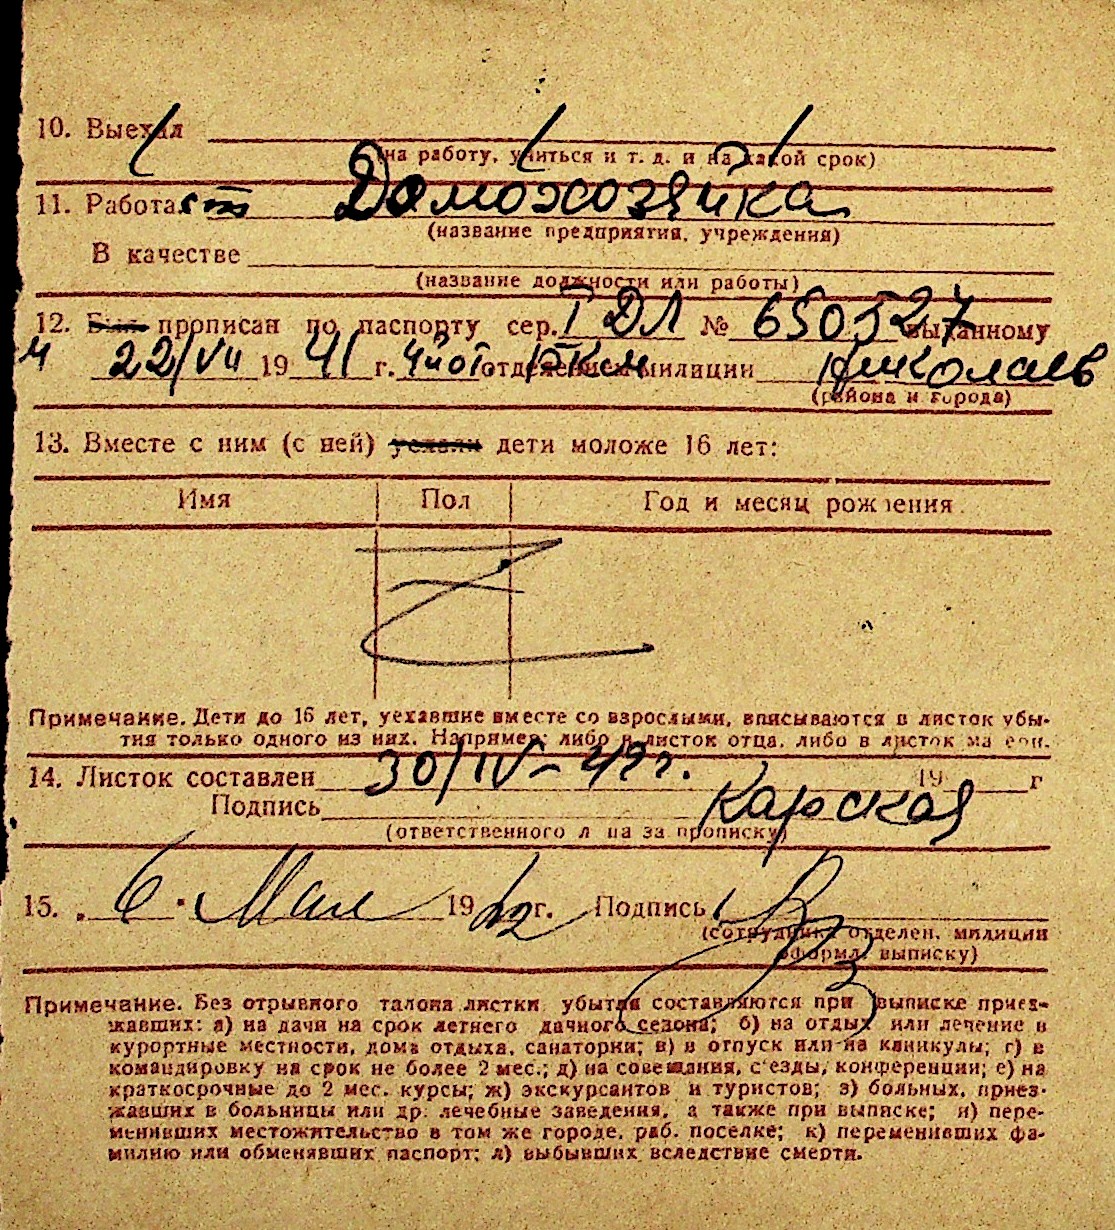 10. Выехал
(на работу, учиться и т. д. и на какой срок)
11. Работает Домохозяйка
(название предприятия, учреждения)
В качестве
(название должности или работы)
12. Был прописан по паспорту сер. I ДЛ № 650527 выданному
22/VII 1941 г. отделением милиции Николаев
(района и города)
13. Вместе с ним (с ней) уехали дети моложе 16 лет:
Имя Пол Год и месяц рождения
Z
Примечание. Дети до 16 лет, уехавшие вместе со взрослыми, вписываются в листок убы-
тия только одного из них. Например: либо в листок отца, либо в листок ма ери.
14. Листок составлен 30/IV – 42 г. 19 г
Подпись Карская
(ответственного л ца за прописку)
15. 6 • Мая 1942 г. Подпись
(сотрудника отделен. милиции
оформл. выписку)
Примечание. Без отрывного талона листки убытия составляются при выписке приез-
жавших: а) на дачи на срок летнего дачного сезона; б) на отдых или лечение в
курортные местности, дома отдыха, санатории; в) в отпуск или на каникулы; г) в
командировку на срок не более 2 мес.; д) на совещания, с'езды, конференции; е) на
краткосрочные до 2 мес. курсы; ж) экскурсантов и туристов; з) больных, приез-
жавших в больницы или др. лечебные заведения, а также при выписке; и) пере-
менивших местожительство в том же городе, раб. поселке; к) переменивших фа-
милию или обменявших паспорт; л) выбывших вследствие смерти.